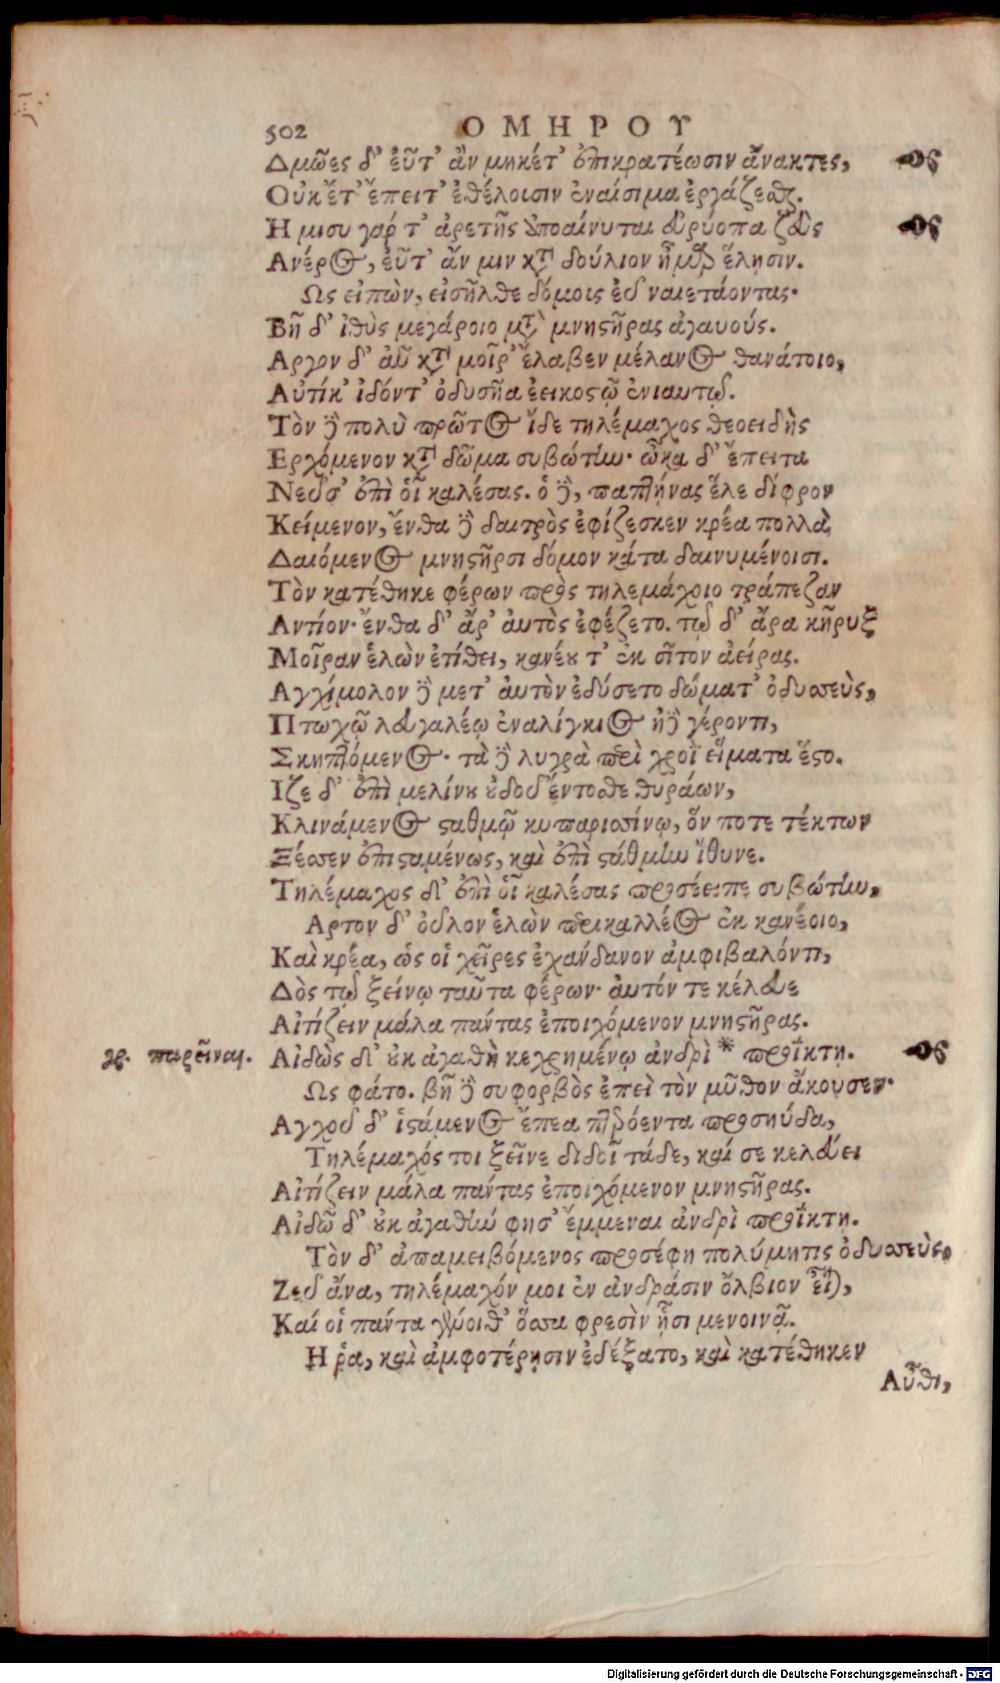 502 ΟΜΗΡΟΥ
Δμῶες δ' εὖτ' ἂν μηκέτ' ἐπικρατέωσιν ἄνακτες,
Οὐκ ἔτ' ἔπειτ' ἐθέλοισιν ἐναίσιμα ἐργάζεσθαι.
Ημισυ γάρ τ' ἀρετῆς ἀποαίνυται εὐρύοπα ζεὺς
Ανέρος, εὖτ' ἄν μιν κατὰ δούλιον ἦμαρ ἕλησιν.
Ως εἰπὼν, εἰσῆλθε δόμοις εὖ ναιετάοντας·
Βῆ δ' ἰθὺς μεγάροιο μετὰ μνηστῆρας ἀγαυούς.
Αργον δ' αὖ κατὰ μοῖρ' ἔλαβεν μέλανος θανάτοιο,
Αὐτίκ' ἰδόντ' ὀδυσῆα ἐεικοστῷ ἐνιαυτῷ.
Τὸν δὲ πολὺ πρῶτος ἴδε τηλέμαχος θεοειδὴς
Ερχόμενον κατὰ δῶμα συβώτην· ὦκα δ' ἔπειτα
Νεῦσ' ἐπὶ οἷ καλέσας. ὁ δὲ, παπτήνας ἕλε δίφρον
Κείμενον, ἔνθα δὲ δαιτρὸς ἐφίζεσκεν κρέα πολλὰ
Δαιόμενος μνηστῆρσι δόμον κάτα δαινυμένοισι.
Τὸν κατέθηκε φέρων πρὸς τηλεμάχοιο τράπεζαν
Αντίον· ἔνθα δ' ἄρ' αὐτὸς ἐφέζετο. τῷ δ' ἄρα κῆρυξ
Μοῖραν ἑλὼν ἐτίθει, κανέου τ' ἐκ σῖτον ἀείρας.
Αγχίμολον δὲ μετ' αὐτὸν ἐδύσετο δώματ' ὀδυσσεὺς,
Πτωχῷ λευγαλέῳ ἐναλίγκιος ἠδὲ γέροντι,
Σκηπτόμενος· τὰ δὲ λυγρὰ περὶ χροῒ εἵματα ἕστο.
Ιζε δ' ἐπὶ μελίνου οὐδοῦ ἔντοσθε θυράων,
Κλινάμενος σταθμῷ κυπαρισσίνῳ, ὅν ποτε τέκτων
Ξέσσεν ἐπισταμένως, καὶ ἐπὶ στάθμην ἴθυνε.
Τηλέμαχος δ' ἐπὶ οἷ καλέσας προσέειπε συβώτην,
Αρτον δ' οὖλον ἑλὼν περικαλλέος ἐκ κανέοιο,
Καὶ κρέα, ὥς οἱ χεῖρες ἐχάνδανον ἀμφιβαλόντι,
Δὸς τῷ ξείνῳ ταῦτα φέρων· αὐτόν τε κέλευε
Αἰτίζειν μάλα πάντας ἐποιχόμενον μνηστῆρας.
γρ. παρεῖναι. Αἰδὼς δ' οὐκ ἀγαθὴ κεχρημένῳ ἀνδρὶ * προΐκτῃ.
Ως φάτο. βῆ δὲ συφορβὸς ἐπεὶ τὸν μῦθον ἄκουσεν·
Αγχοῦ δ' ἱστάμενος ἔπεα πτερόεντα προσηύδα,
Τηλέμαχός τοι ξεῖνε διδοῖ τάδε, καί σε κελεύει
Αἰτίζειν μάλα πάντας ἐποιχόμενον μνηστῆρας.
Αἰδῶ δ' οὐκ ἀγαθὴν φησ' ἔμμεναι ἀνδρὶ προΐκτῃ.
Τὸν δ' ἀπαμειβόμενος προσέφη πολύμητις ὀδυσσεὺς,
Ζεῦ ἄνα, τηλέμαχόν μοι ἐν ἀνδράσιν ὄλβιον εἶναι,
Καί οἱ πάντα γένοιθ' ὅσσα φρεσὶν ᾗσι μενοινᾷ.
Η ῥα, καὶ ἀμφοτέρῃσιν ἐδέξατο, καὶ κατέθηκεν
Αὖθι,
Digitalisierung gefördert durch die Deutsche Forschungsgemeinschaft - DFG